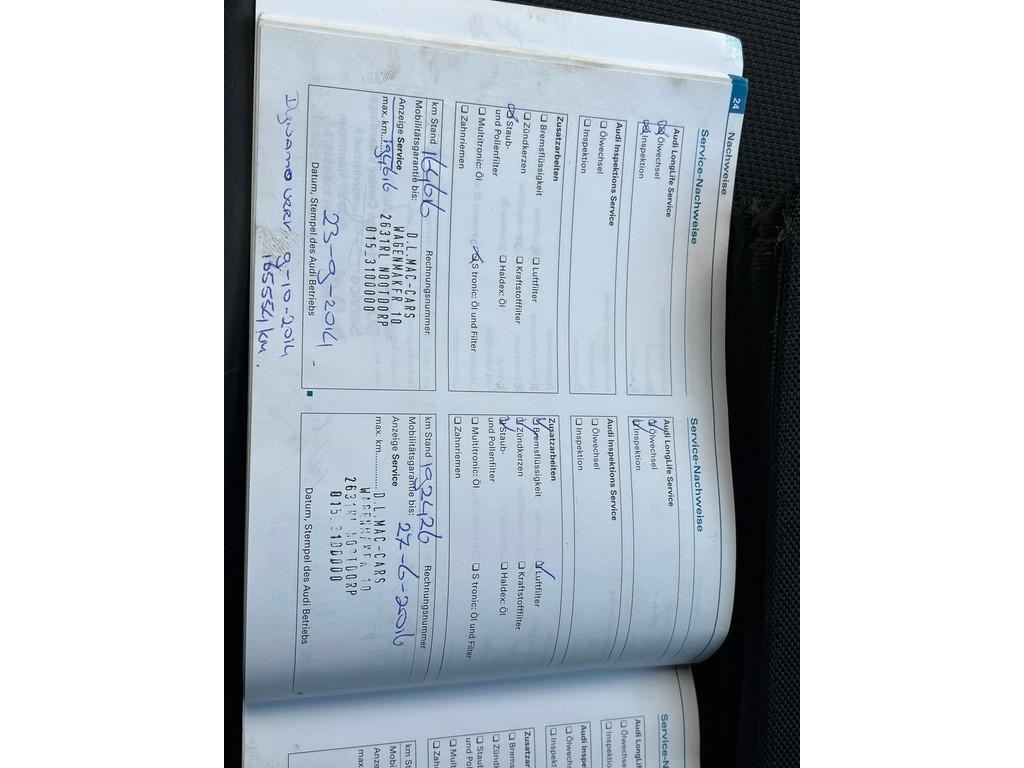 24
Nachweise
Service-Nachweise
Audi LongLife Service
Ölwechsel
Inspektion
Audi Inspektions Service
Ölwechsel
Inspektion
Zusatzarbeiten
Bremsflüssigkeit
Luftfilter
Zündkerzen
Kraftstofffilter
Staub-
und Pollenfilter
Haldex: Öl
Multitronic: Öl
S tronic: Öl und Filter
Zahnriemen
km Stand 164616 Rechnungsnummer
Mobilitätsgarantie bis:
Anzeige Service
max. km 194616
D.L.MAC-CARS
WAGENMAKER 10
2631RL NOOTDORP
015_3100000
23-9-2014
Datum, Stempel des Audi Betriebs
9-10-2014
165554 km.
Service-Nachweise
Audi LongLife Service
Ölwechsel
Inspektion
Audi Inspektions Service
Ölwechsel
Inspektion
Zusatzarbeiten
Bremsflüssigkeit
Luftfilter
Zündkerzen
Kraftstofffilter
Staub-
und Pollenfilter
Haldex: Öl
Multitronic: Öl
S tronic: Öl und Filter
Zahnriemen
km Stand 192426 Rechnungsnummer
Mobilitätsgarantie bis: 27-6-2016
Anzeige Service
max. km
D.L.MAC-CARS
WAGENMAKER 10
2631RL NOOTDORP
015_3100000
Datum, Stempel des Audi Betriebs
Service-N
Audi LongL
Ölwechse
Inspektio
Audi Inspe
Ölwechs
Inspekt
Zusatzar
Brems
Zünd
Staub
und Po
Mul
Zah
km St
Mobi
Anze
max.